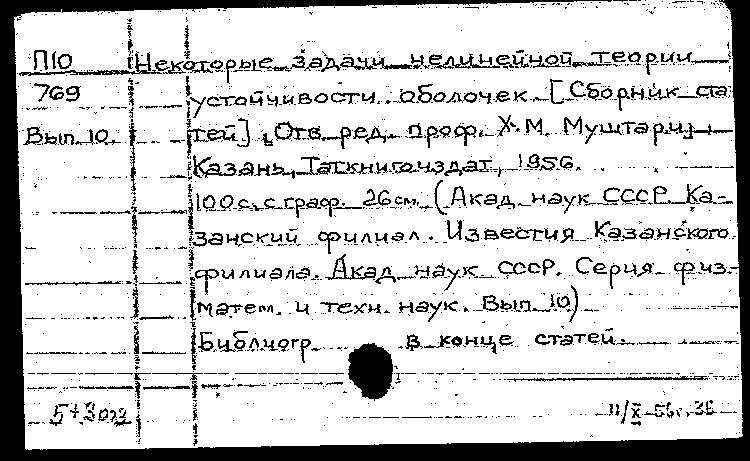 П10 Некоторые задачи нелинейной теории
769 устойчивости оболочек. [Сборник ста-
Вып. 10. тей]. Отв. ред. проф. Х.М. Муштари.
Казань, Таткнигоиздат, 1956.
100 с. с граф. 26 см. (Акад. наук СССР. Ка-
занский филиал. Известия Казанского
филиала. Акад. наук СССР. Серия физ.-
матем. и техн. наук. Вып. 10)
Библиогр. в конце статей.
II/X-56г.